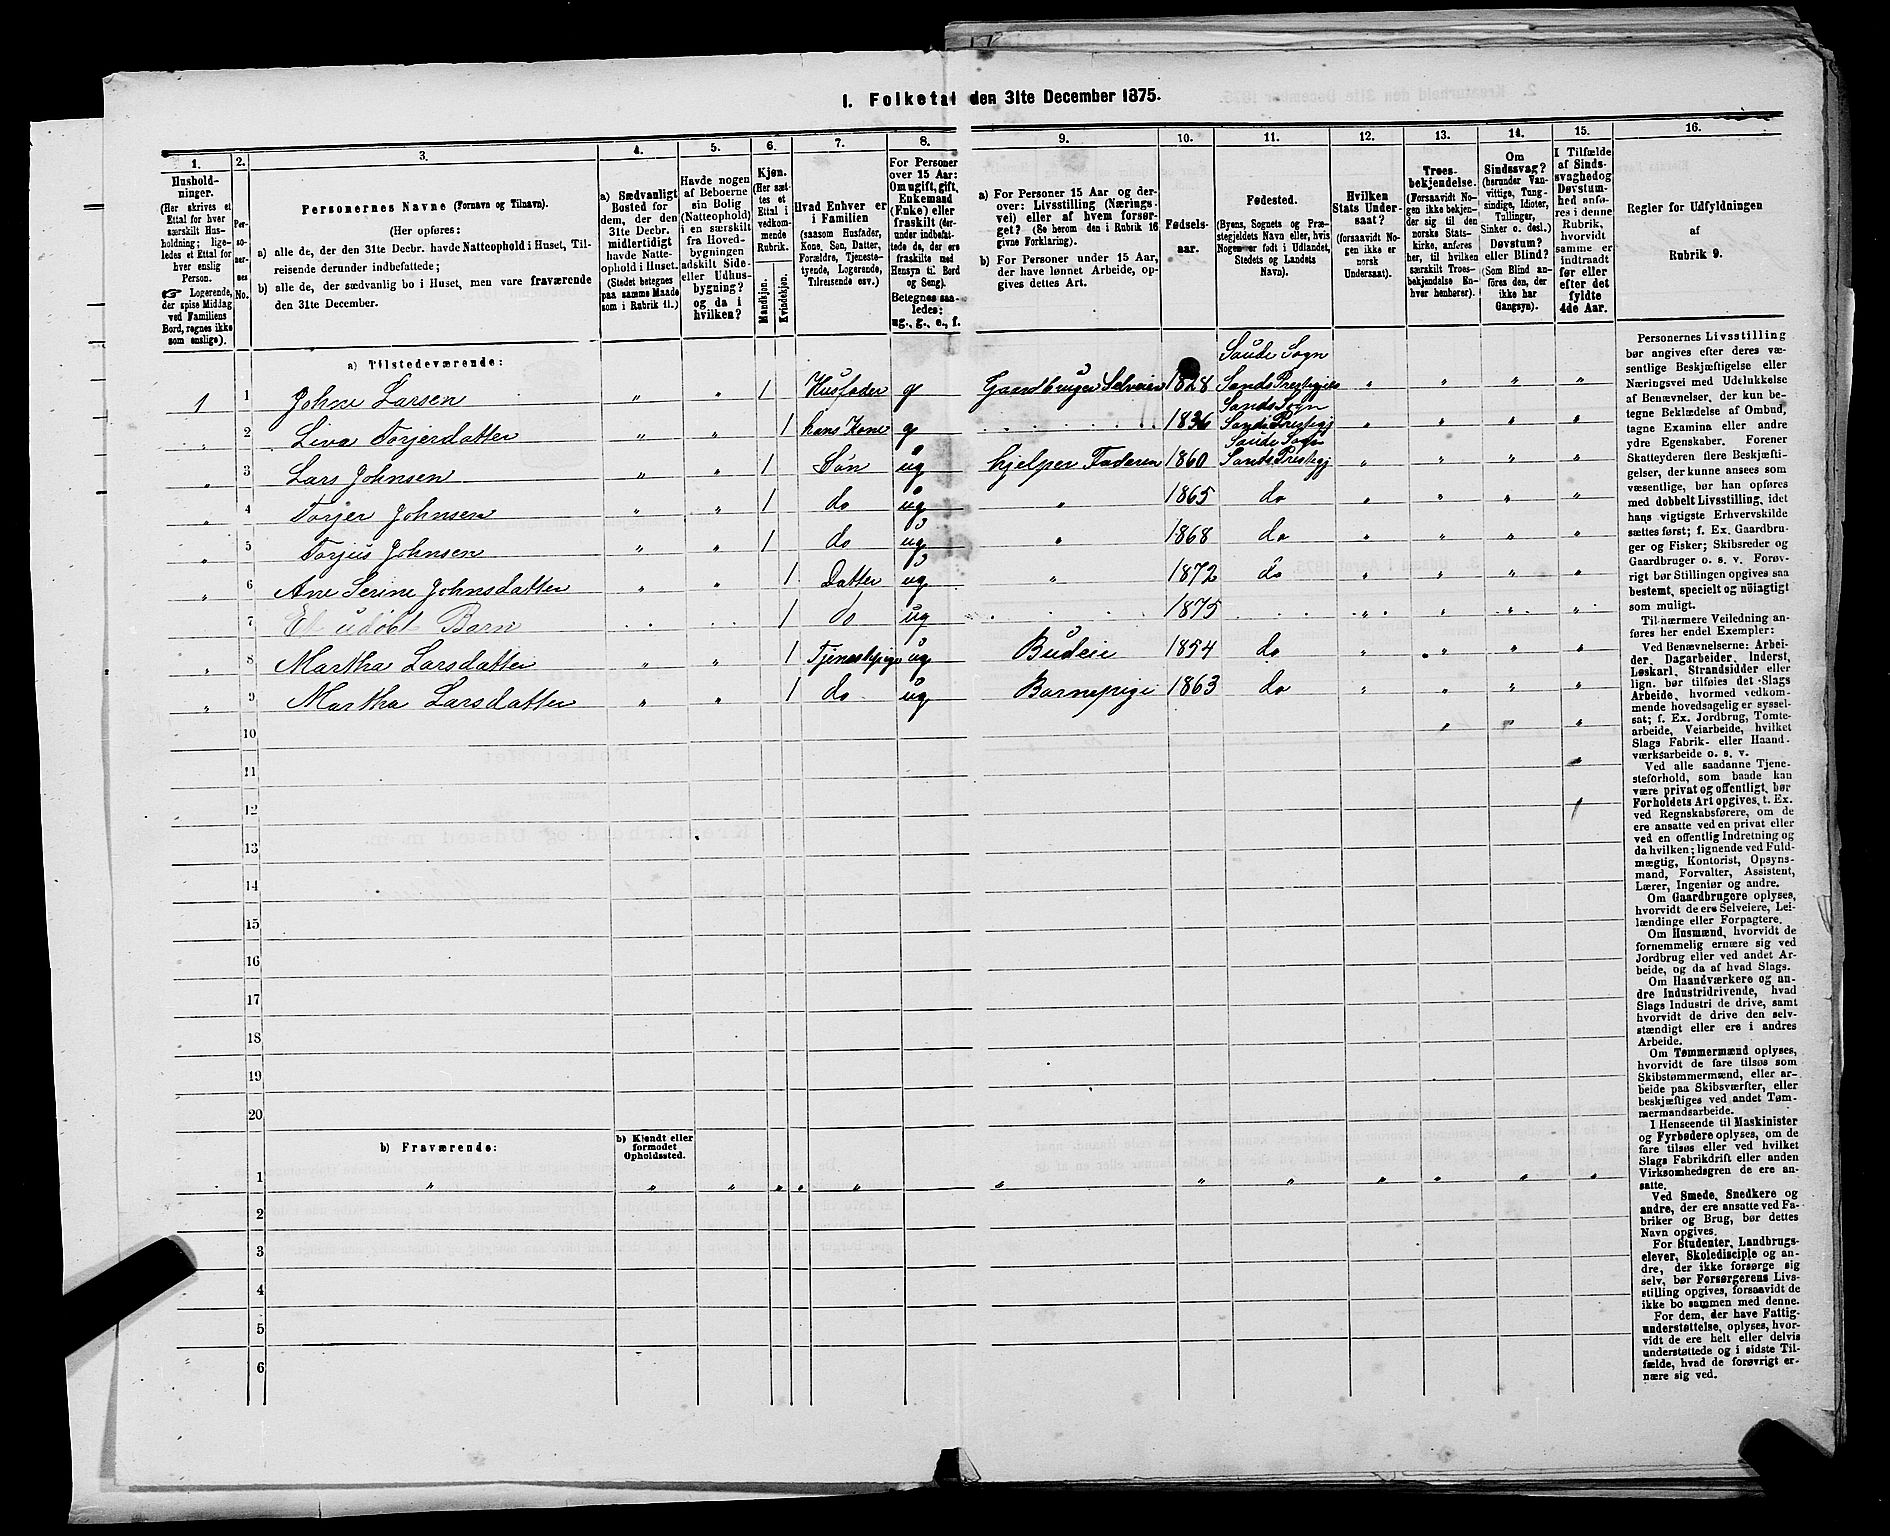 1. Folketal den 31te December 1875.
1.
2.
3.
4.
5.
6.
7.
8.
9.
10.
11.
12.
13.
14.
15.
16.
Husholdninger.
(Her skrives et
Ettal for hver
særskilt Husholdning;
ligeledes et Ettal
for hver enslig
Person.
Logerende,
der spise Middag
ved Familiens
Bord, regnes ikke
som enslige).
Personernes No.
Personernes Navne (Fornavn og Tilnavn).
(Her opføres:
a) alle de, der den 31te Decbr. havde Natteophold i Huset, Tilreisende
derunder indbefattede;
b) alle de, der sædvanlig bo i Huset, men vare fraværende
den 31te December.
a) Sædvanligt
Bosted for
dem, der den
31te Decbr.
midlertidigt
havde Natteophold
i Huset.
(Stedet betegnes
paa samme Maade
som i Rubrik 11.)
Havde nogen
af Beboerne
sin Bolig
(Natteophold)
i en særskilt
fra Hovedbygningen
adskilt Side-
eller Udhusbygning?
og da i
hvilken?
Kjøn.
(Her sættes
et
Ettal i
vedkommende
Rubrik.
Mandkjøn.
Kvindekjøn.
Hvad Enhver er
i Familien
(saasom Husfader,
Kone, Søn, Datter,
Forældre, Tjenestetyende,
Logerende,
Tilreisende osv.)
For Personer
over 15 Aar:
Om ugift, gift,
Enkemand
(Enke) eller
fraskilt (derunder
indbefattede
de, der ere
fraskilte med
Hensyn til Bord
og Seng).
Betegnes saaledes:
ug., g., e., f.
a) For Personer 15 Aar og derover:
Livsstilling (Næringsvei)
eller af hvem forsørget?
(Se herom den i Rubrik 16
givne Forklaring).
b) For Personer under 15 Aar,
der have lønnet Arbeide, opgives
dettes Art.
Fødselsaar.
Fødested.
(Byens, Sognets og Præstegjeldets
Navn eller, hvis
Nogen er født i Udlandet,
Stedets og Landets
Navn).
Hvilken
Stats Undersaat?
(forsaavidt Nogen
ikke er
norsk
Undersaat).
Troesbekjendelse.
(Forsaavidt Nogen
ikke bekjender
sig til den
norske Statskirke,
anføres
her, til hvilken
særskilt Troesbekjendelse
Enhver
henhører).
Om
Sindssvag?
(herunder Vanvittige,
Tungsindige,
Idioter,
Tullinger,
Sinker o. desl.)
Døvstum?
eller Blind?
(Som Blind anføres
den, der
ikke har
Gangsyn).
I Tilfælde
af Sindssvaghed
og
Døvstumhed
anføres
i denne
Rubrik,
hvorvidt
samme er
indtraadt
før eller
efter det
fyldte
4de Aar.
Regler for Udfyldningen
af
Rubrik 9.
a) Tilstedeværende:
1 1 Johne Larsen " " 1 Husfader g Gaardbruger Selveier 1828 Saude Sogn Sands Prestegjeld " " " "
" 2 Liva Torjersdatter " " 1 hans Kone g 1836 Sands Sogn Sands Prestegj " " " "
" 3 Lars Johnsen " " 1 Søn ug hjelper Faderen 1860 Saude Sogn Sands Prestegj " " " "
" 4 Torjer Johnsen " " 1 do ug " 1865 do " " " "
" 5 Torjus Johnsen " " 1 do ug " 1868 do " " " "
" 6 Ane Serine Johnsdatter " " 1 Datter ug " 1872 do " " " "
7 Et udöbt Barn 1 do ug 1875 " " " "
" 8 Martha Larsdatter " " 1 Tjenestepige ug Budeie 1854 do " " " "
" 9 Martha Larsdatter " " 1 do ug Barnepige 1863 do " " " "
10 " " "
11 "
12
13
14
15
16
17
18
19
20
b) Fraværende:
b) Kjendt eller
formodet
Opholdssted.
1 " " " " " " " " " " " " "
2
3
4
5
6
Personernes Livsstilling
bør angives efter deres væsentlige
Beskjæftigelse eller
Næringsvei med Udelukkelse
af Benævnelser, der kun betegne
Beklædelse af Ombud,
tagne Examina eller andre
ydre Egenskaber. Forener
Skatteyderen flere Beskjæftigelser,
der kunne ansees som
væsentlige, bør han opføres
med dobbelt Livsstilling, idet
hans vigtigste Erhvervskilde
sættes først; f. Ex. Gaardbruger
og Fisker; Skibsreder og
Gaardbruger o. s. v. Forøvrigt
bør Stillingen opgives saa
bestemt, specielt og nöiagtigt
som muligt.
Til nærmere Veiledning anføres
her endel Exempler:
Ved Benævnelserne: Arbeider,
Dagarbeider, Inderst,
Løskarl, Strandsidder eller
lign. bør tilføies det Slags
Arbeide, hvormed vedkommende
hovedsagelig er sysselsat;
f. Ex. Jordbrug, Tomtearbeide,
Veiarbeide, hvilket
Slags Fabrik- eller Haandværksarbeide
o. s. v.
Ved alle saadanne Tjenesteforhold,
som baade kan
være privat og offentligt, bør
Forholdets Art opgives, t. Ex.
ved Regnskabsførere, om de
ere ansatte ved en privat eller
ved en offentlig Indretning og
da hvilken; lignende ved Fuldmægtig,
Kontorist, Opsynsmand,
Forvalter, Assistent,
Lærer, Ingeniør og andre.
Om Gaardbrugere oplyses,
hvorvidt de ere Selveiere, Leilændinge
eller Forpagtere.
Om Husmænd, hvorvidt de
fornemmelig ernære sig ved
Jordbrug eller ved andet Arbeide,
og da af hvad Slags.
Om Haandværkere og andre
Industridrivende, hvad
Slags Industri de drive, samt
hvorvidt de drive den selvstændigt
eller ere i andres
Arbeide.
Om Tømmermænd oplyses,
hvorvidt de fare tilsøs som
Skibstømmermænd, eller arbeide
paa Skibsværfter, eller
beskjæftiges ved andet Tømmermandsarbeide.
I Henseende til Maskinister
og Fyrbødere oplyses, om de
fare tilsøs eller ved hvilket
Slags Fabrikdrift eller anden
Virksomhedsgren de ere ansatte.
Ved Smede, Snedkere og
andre, der ere ansatte ved Fabriker
og Brug, bør dettes
Navn opgives.
For Studenter, Landbrugselever,
Skoledisciple og andre,
der ikke forsørge sig
selv, bør Forsørgerens Livsstilling
opgives, forsaavidt de
ikke bo sammen med denne.
For dem, der have Fattigunderstøttelse,
oplyses, hvorvidt
de ere helt eller delvis
understøttede og i sidste Tilfælde,
hvad de forøvrigt ernære
sig ved.